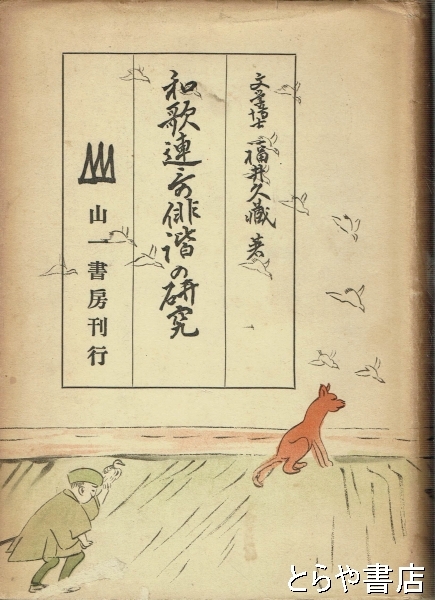 文学博士 福井久蔵 著
和歌連歌俳諧の研究
山一書房刊行
とらや書店